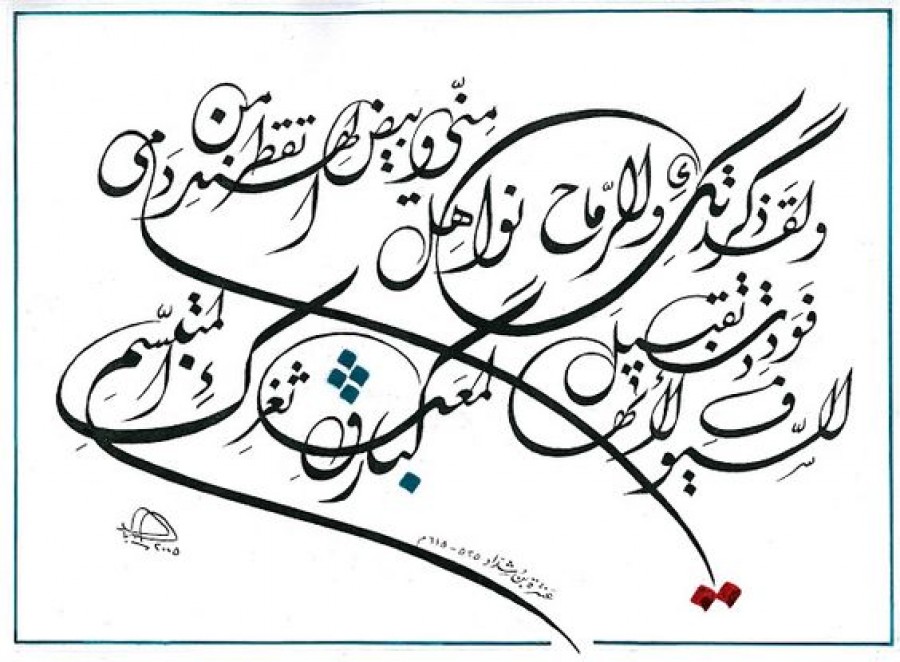 ولقد ذكرتكِ والرّماح نواهلٌ
منّي وبيض الهند تقطر من دمي
فوددت تقبيل السّيوف لأنها
لمعت كبارق ثغركِ المتبسّم
عنترة بن شداد ٥٢٥ - ٦١٥ م
٢٠٠٥